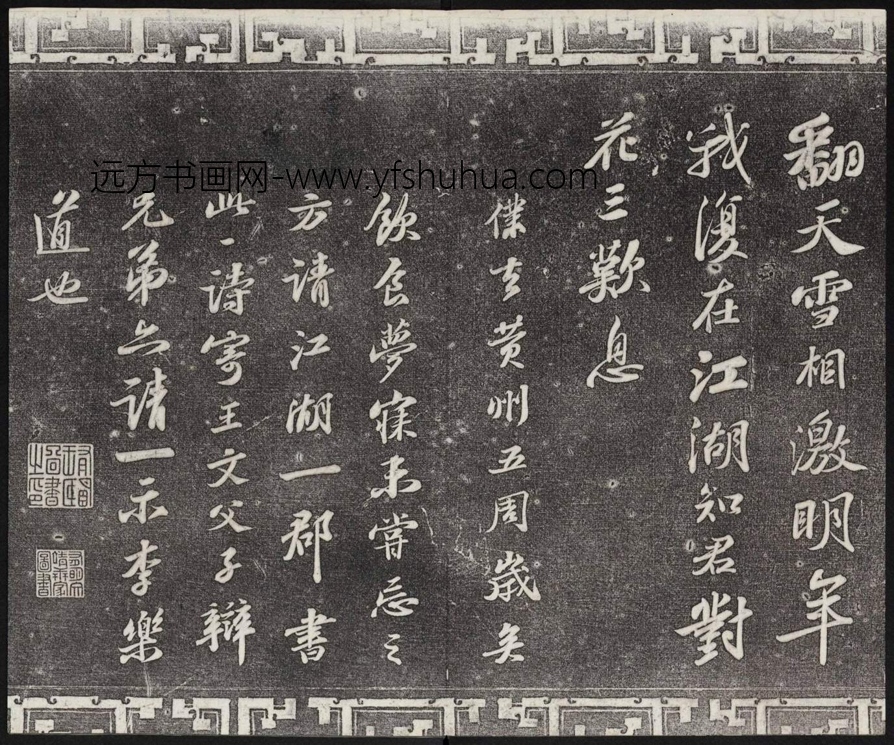 翻天雪相激明年
我復在江湖知君對
花三歎息
僕去黄州五周歲矣
飲食夢寐未嘗忘之
方請江湖一郡書
此一詩寄王文父子辯
兄弟亦請一示李樂
道也
远方书画网-www.yfshuhua.com